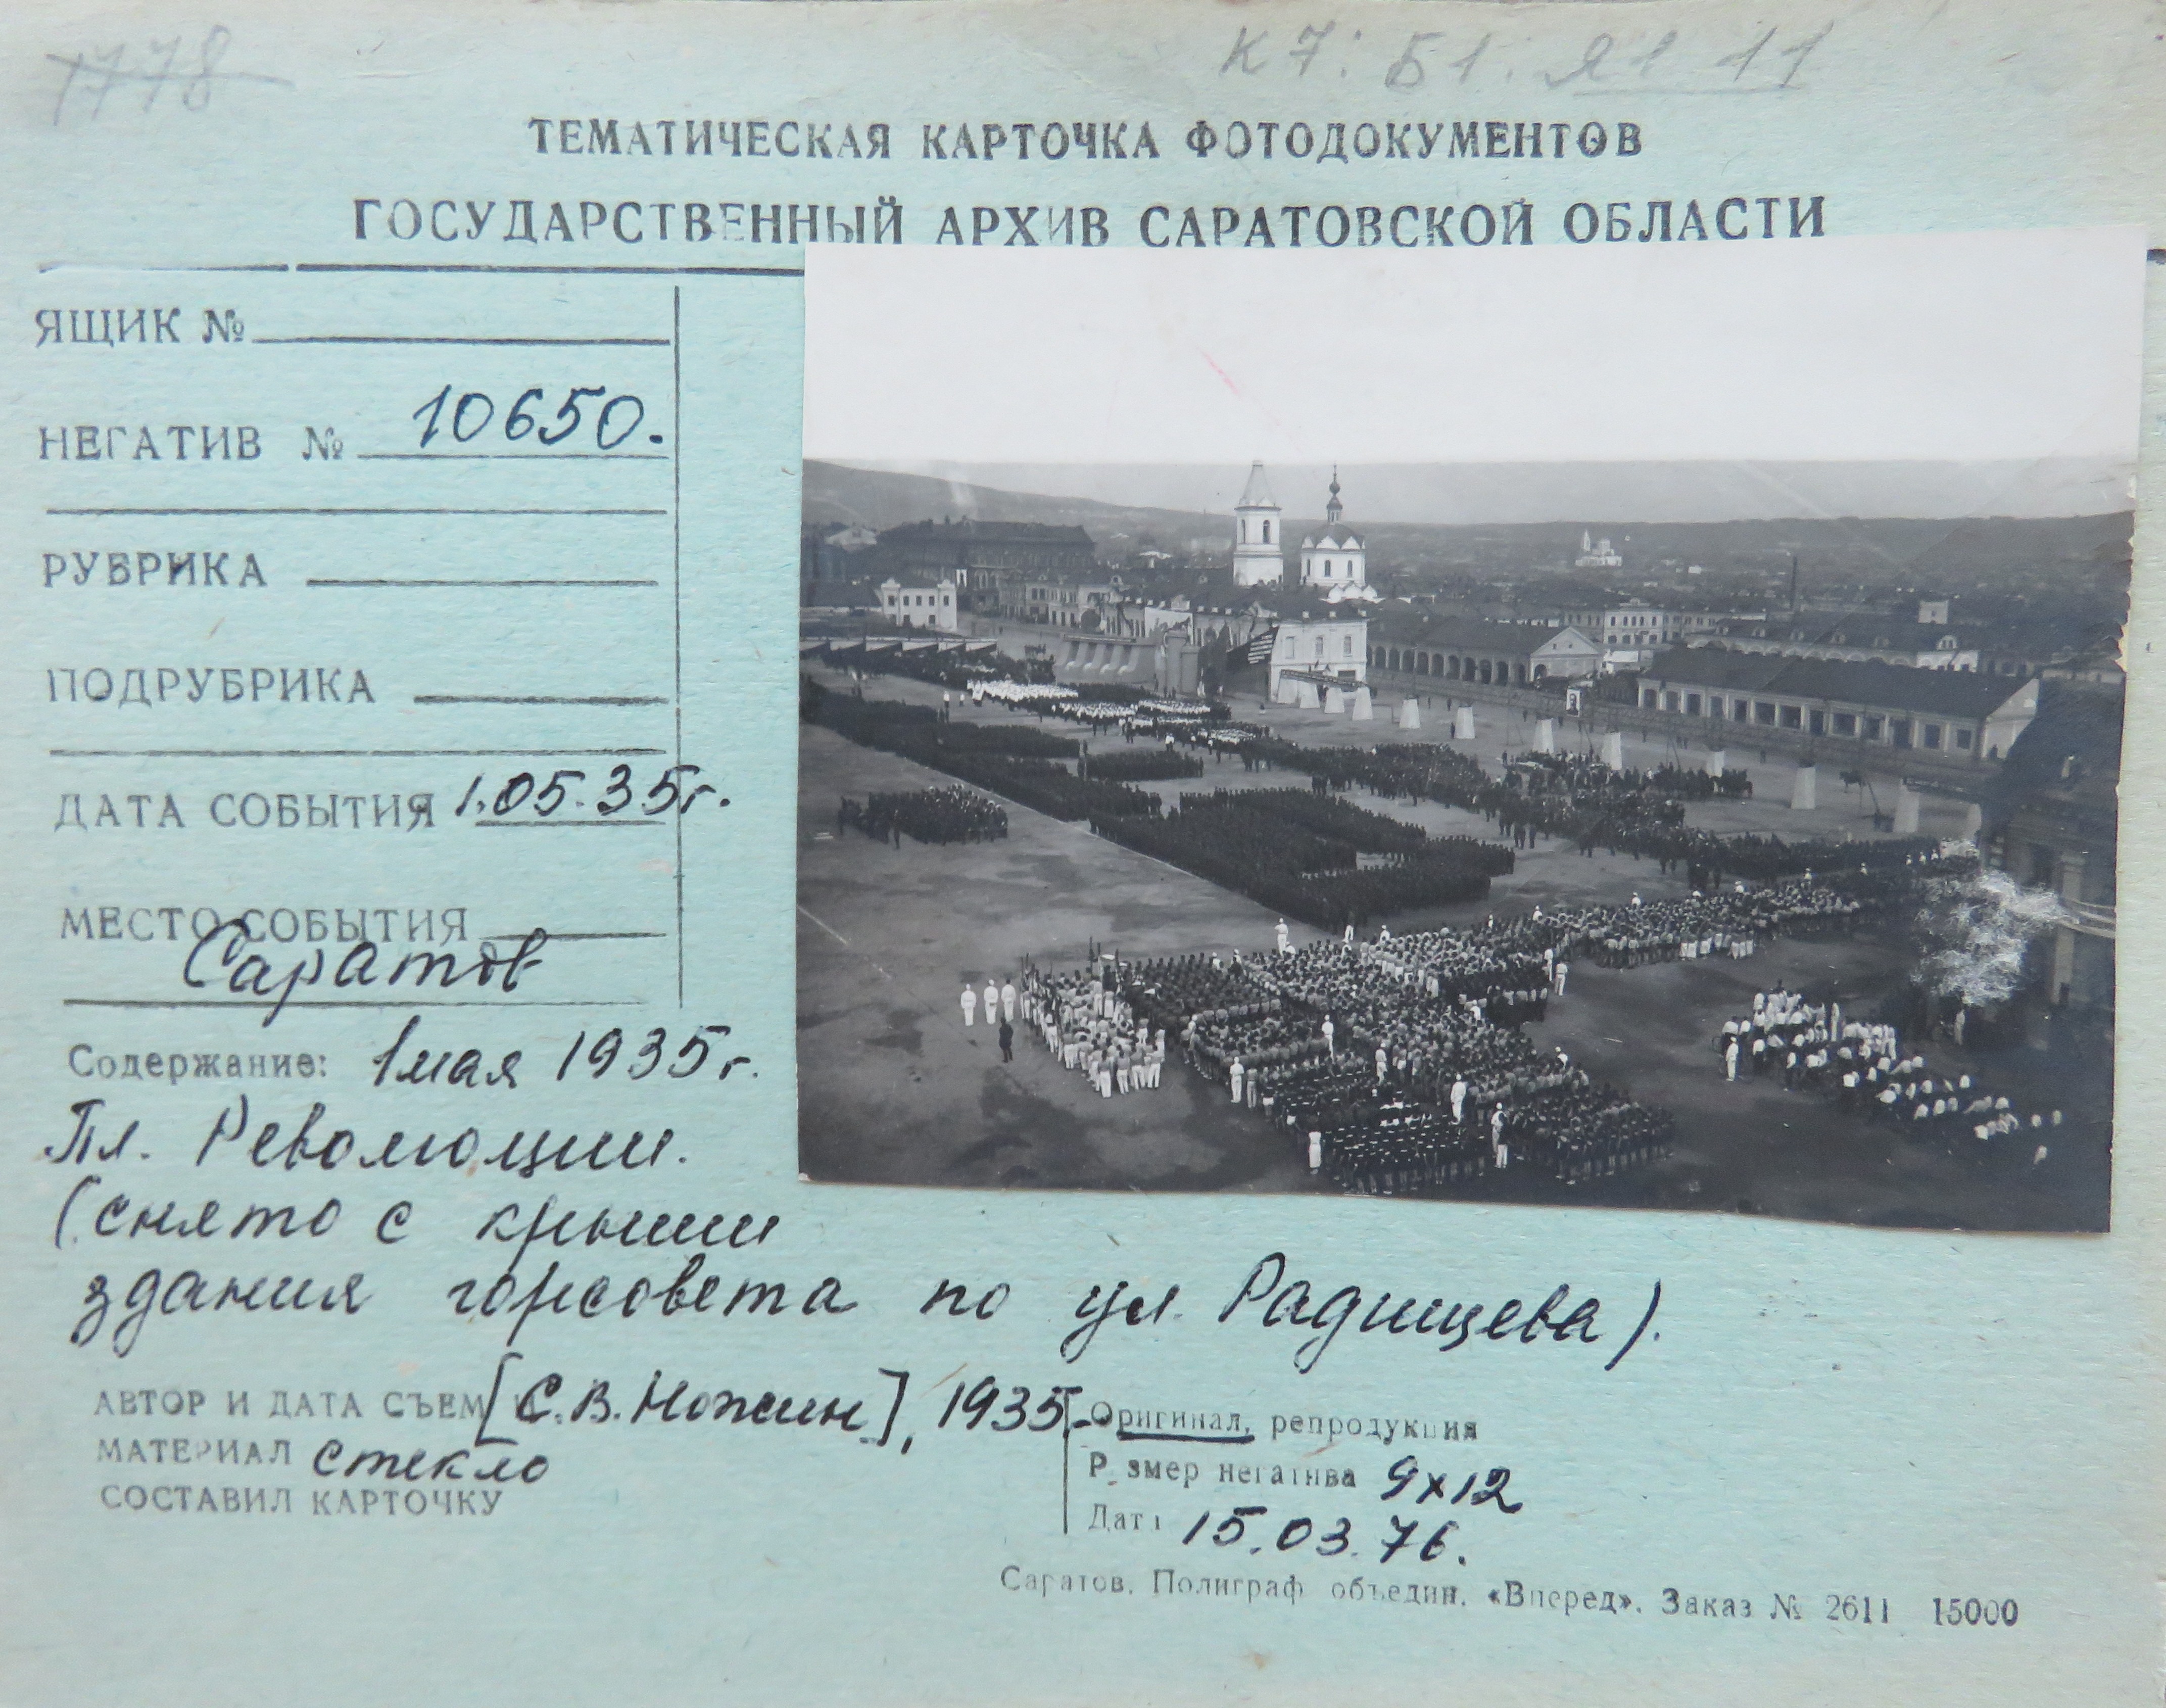 1778
К 7: Б1. Я1 11
ТЕМАТИЧЕСКАЯ КАРТОЧКА ФОТОДОКУМЕНТОВ
ГОСУДАРСТВЕННЫЙ АРХИВ САРАТОВСКОЙ ОБЛАСТИ
ЯЩИК №
НЕГАТИВ № 10650.
РУБРИКА
ПОДРУБРИКА
ДАТА СОБЫТИЯ 1.05.35г.
МЕСТО СОБЫТИЯ
Саратов
Содержание: 1 мая 1935г.
Пл. Революции.
(снято с крыши
здания горсовета по ул. Радищева).
АВТОР И ДАТА СЪЕМ [С.В. Ножин], 1935г.
МАТЕРИАЛ стекло
СОСТАВИЛ КАРТОЧКУ
Оригинал, репродукция
Размер негатива 9х12
Дата 15.03.76.
Саратов. Полиграф объедин. «Вперед». Заказ № 2611 15000